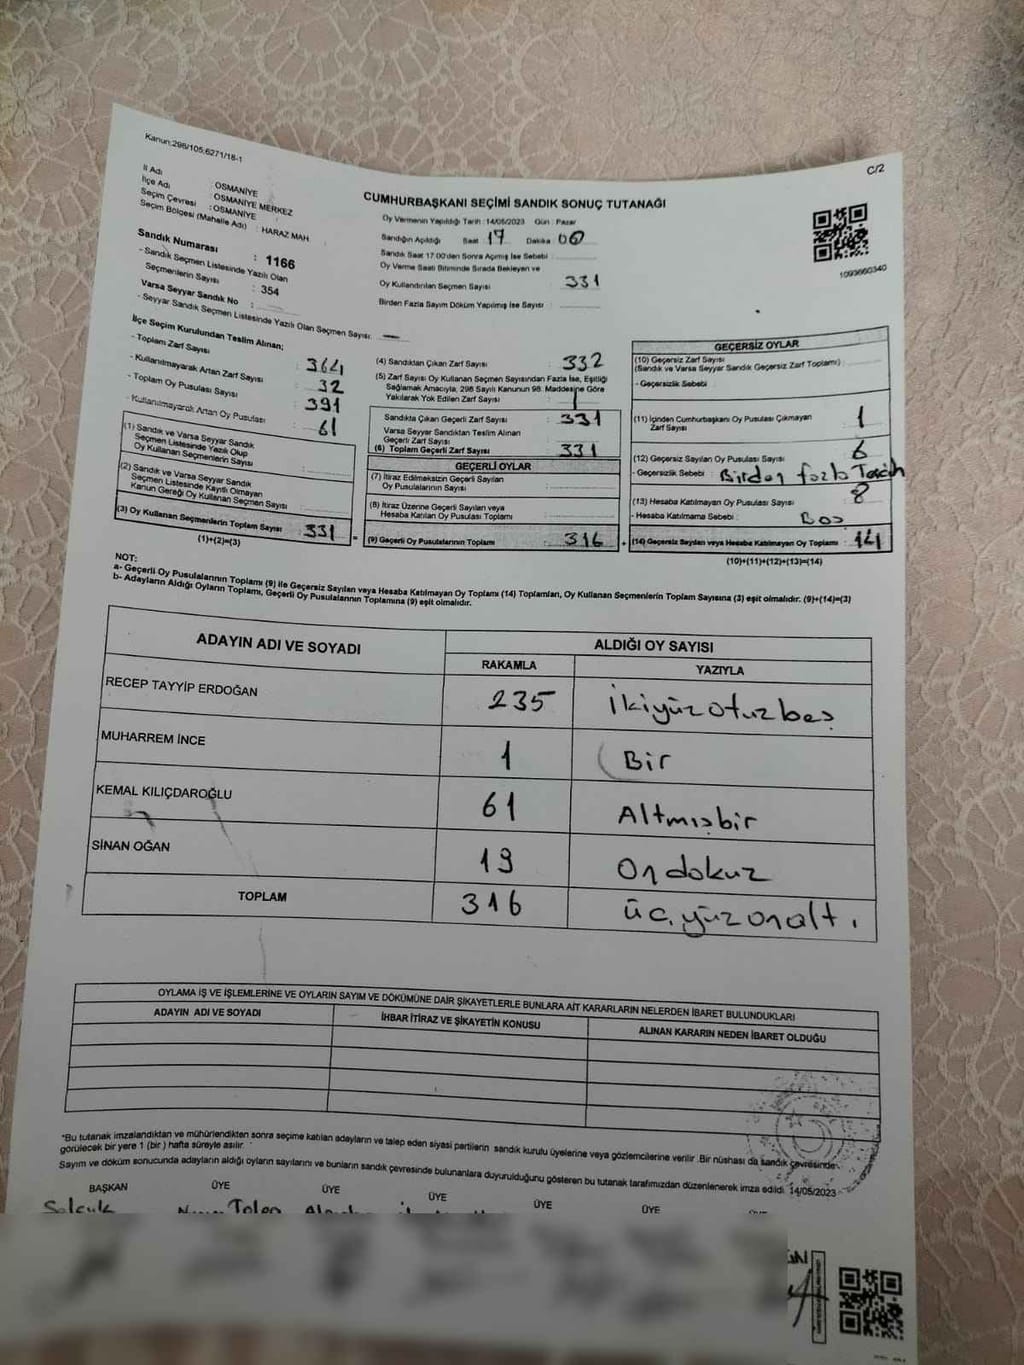 Kanun:298/105,6271/18-1
C/2
İl Adı : OSMANİYE
İlçe Adı : OSMANİYE MERKEZ
Seçim Çevresi : OSMANİYE
Seçim Bölgesi (Mahalle Adı) : HARAZ MAH
Sandık Numarası : 1166
- Sandık Seçmen Listesinde Yazılı Olan
Seçmenlerin Sayısı : 354
Varsa Seyyar Sandık No :
- Seyyar Sandık Listesinde Yazılı Olan Seçmen Sayısı: —
CUMHURBAŞKANI SEÇİMİ SANDIK SONUÇ TUTANAĞI
Oy Vermenin Yapıldığı Tarih :14/05/2023 Gün : Pazar
Sandığın Açıldığı Saat 17 Dakika 00
Sandık Saat 17.00'den Sonra Açılmış İse Sebebi :
Oy Verme Saati Bitiminde Sırada Bekleyen ve
Oy Kullandırılan Seçmen Sayısı : 331
Birden Fazla Sayım Döküm Yapılmış İse Sayısı :
1093660340
İlçe Seçim Kurulundan Teslim Alınan;
- Toplam Zarf Sayısı : 364
- Kullanılmayarak Artan Zarf Sayısı : 32
- Toplam Oy Pusulası Sayısı : 391
- Kullanılmayarak Artan Oy Pusulası : 61
(1) Sandık ve Varsa Seyyar Sandık
Seçmen Listesinde Yazılı Olup
Oy Kullanan Seçmenlerin Sayısı :
(2) Sandık ve Varsa Seyyar Sandık
Seçmen Listesinde Kayıtlı Olmayan
Kanun Gereği Oy Kullanan Seçmen Sayısı :
(3) Oy Kullanan Seçmenlerin Toplam Sayısı : 331
(1)+(2)=(3)
(4) Sandıktan Çıkan Zarf Sayısı : 332
(5) Zarf Sayısı Oy Kullanan Seçmen Sayısından Fazla İse, Eşitliği
Sağlamak Amacıyla, 298 Sayılı Kanunun 98. Maddesine Göre
Yakılarak Yok Edilen Zarf Sayısı : 1
Sandıkta Çıkan Geçerli Zarf Sayısı : 331
Varsa Seyyar Sandıktan Teslim Alınan
Geçerli Zarf Sayısı :
(6) Toplam Geçerli Zarf Sayısı : 331
GEÇERLİ OYLAR
(7) İtiraz Edilmeksizin Geçerli Sayılan
Oy Pusulalarının Sayısı :
(8) İtiraz Üzerine Geçerli Sayılan veya
Hesaba Katılan Oy Pusulası Toplamı :
(9) Geçerli Oy Pusulalarının Toplamı : 316
GEÇERSİZ OYLAR
(10) Geçersiz Zarf Sayısı
(Sandık ve Varsa Seyyar Sandık Geçersiz Zarf Toplamı) :
- Geçersizlik Sebebi :
(11) İçinden Cumhurbaşkanı Oy Pusulası Çıkmayan
Zarf Sayısı : 1
(12) Geçersiz Sayılan Oy Pusulası Sayısı : 6
- Geçersizlik Sebebi : Birden fazla Tercih
(13) Hesaba Katılmayan Oy Pusulası Sayısı : 8
- Hesaba Katılmama Sebebi : Boş
(14) Geçersiz Sayılan veya Hesaba Katılmayan Oy Toplamı : 14
(10)+(11)+(12)+(13)=(14)
NOT:
a- Geçerli Oy Pusulalarının Toplamı (9) ile Geçersiz Sayılan veya Hesaba Katılmayan Oy Toplamı (14) Toplamları, Oy Kullanan Seçmenlerin Toplam Sayısına (3) eşit olmalıdır. (9)+(14)=(3)
b- Adayların Aldığı Oyların Toplamı, Geçerli Oy Pusulalarının Toplamına (9) eşit olmalıdır.
ADAYIN ADI VE SOYADI ALDIĞI OY SAYISI
RAKAMLA YAZIYLA
RECEP TAYYİP ERDOĞAN 235 ikiyüzotuzbeş
MUHARREM İNCE 1 Bir
KEMAL KILIÇDAROĞLU 61 Altmışbir
SİNAN OĞAN 19 Ondokuz
TOPLAM 316 üçyüzonaltı
OYLAMA İŞ VE İŞLEMLERİNE VE OYLARIN SAYIM VE DÖKÜMÜNE DAİR ŞİKAYETLERLE BUNLARA AİT KARARLARIN NELERDEN İBARET BULUNDUKLARI
ADAYIN ADI VE SOYADI İHBAR İTİRAZ VE ŞİKAYETİN KONUSU ALINAN KARARIN NEDEN İBARET OLDUĞU
"Bu tutanak imzalandıktan ve mühürlendikten sonra seçime katılan adayların ve talep eden siyasi partilerin sandık kurulu üyelerine veya gözlemcilerine verilir. Bir nüshası da sandık çevresinde
görülecek bir yere 1 (bir) hafta süreyle asılır.
Sayım ve döküm sonucunda adayların aldığı oyların sayılarını ve bunların sandık çevresinde bulunanlara duyurulduğunu gösteren bu tutanak tarafımızdan düzenlenerek imza edildi. 14/05/2023
BAŞKAN ÜYE ÜYE ÜYE ÜYE ÜYE ÜYE
Selçuk